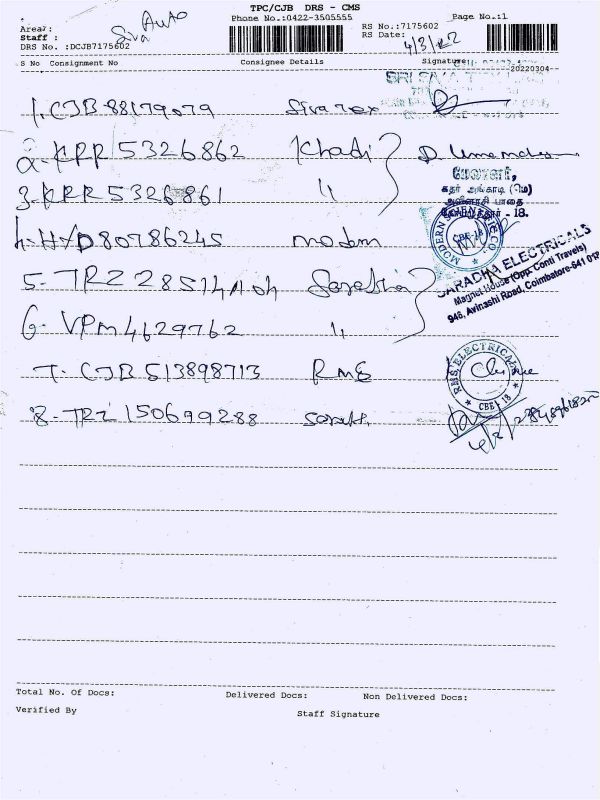 TPC/CJB DRS - CMS
Phone No.:0422-3505555
Page No.:1
Area:
Siva Auto
Staff :
DRS No. :DCJB7175602
RS No.:7175602
RS Date:
4/3/22
S No Consignment No Consignee Details Signature
20220304
1. CJB 88179079
2. KRR 5326862 Khadi
3. KRR 5326861 "
மேலாளர்,
கதர் அங்காடி (மெ)
அவினாசி பாதை
கோயமுத்தூர் - 18.
4. HYD 80786245 modern
MODERN SCIENTIFIC CO
CBE-18
5- TRZ 28514404 Saradha
SARADHA ELECTRICALS
Magnet House (Opp. Conti Travels)
946, Avinashi Road, Coimbatore-641 018
6- VPM 4629762 "
7- CJB 513898713 RMS
RMS ELECTRICAL
CBE 18
8- TRZ 150699288
Total No. Of Docs: Delivered Docs: Non Delivered Docs:
Verified By Staff Signature